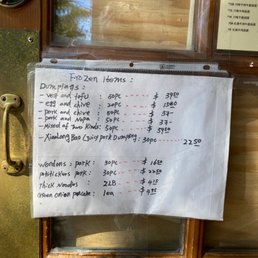 Frozen Items:
Dumplings:
- veg and tofu: 50pc --- $ 39.50
- egg and chive: 20pc --- $ 18.00
- pork and chive: 50pc --- $ 37-
- pork and napa: 50pc --- $ 37-
- Mixed of Two Kinds: 50pc --- $ 39.50
- XiaoLong Bao (juicy pork Dumpling: 30pc --- 22.50
Wontons: pork: 50pc --- $ 16.50
potstickers pork: 30pc --- $ 22.50
Thick Noodles: 2LB --- $
Green onion pancake: 1ea --- $